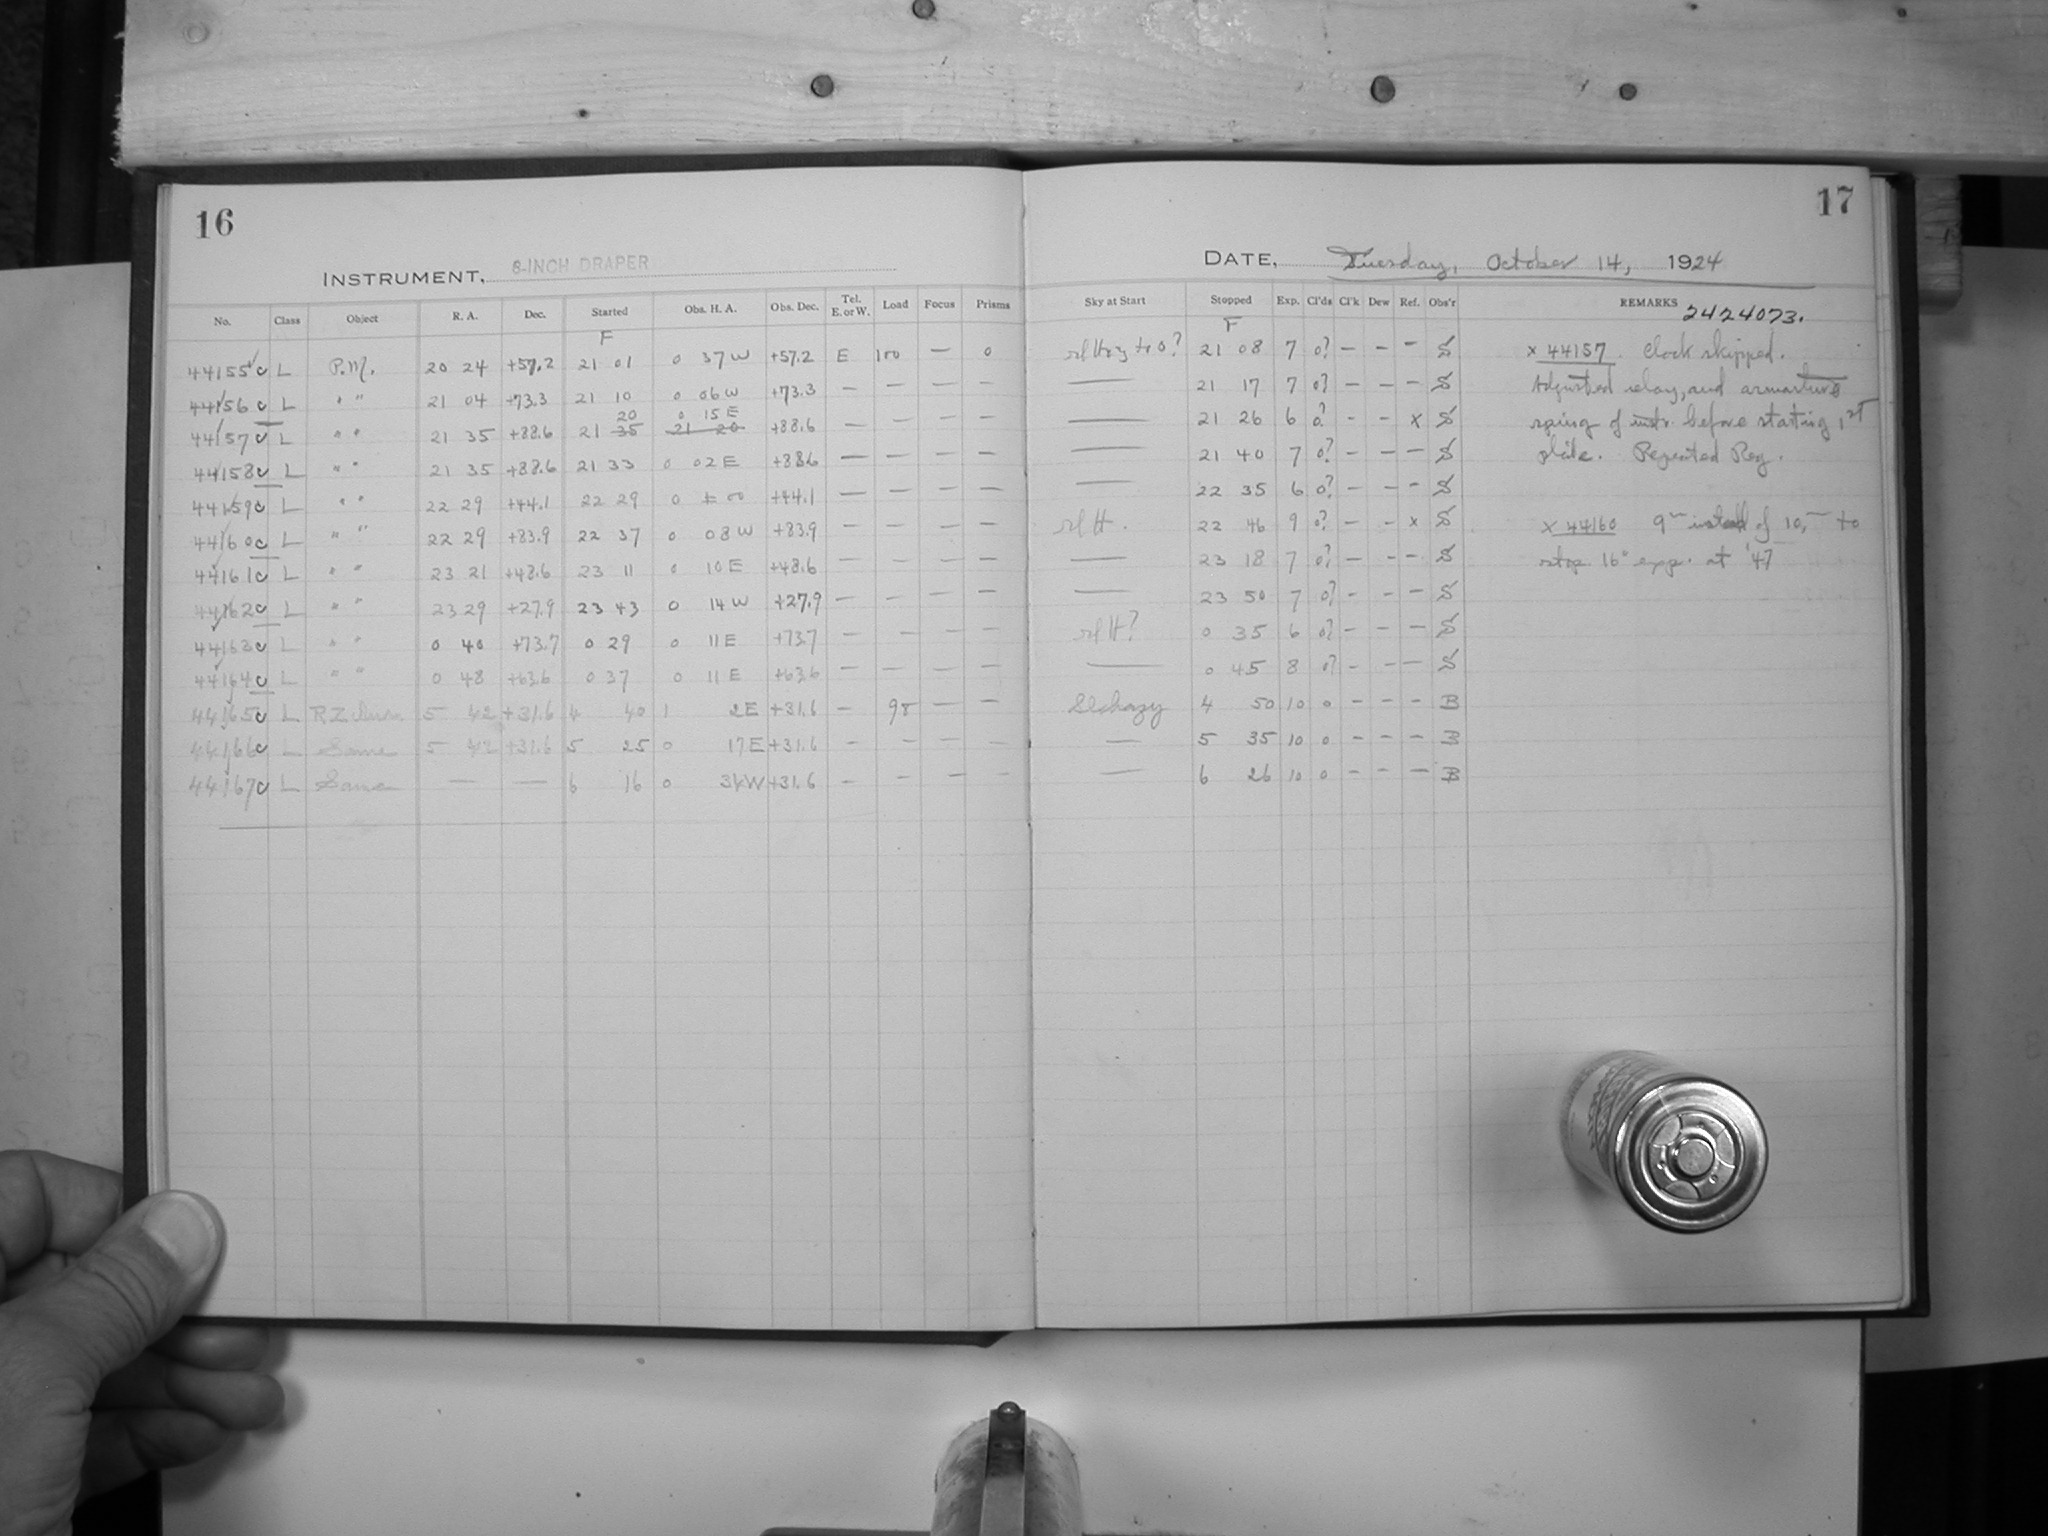 16
INSTRUMENT, 8-INCH DRAPER
No. Class Object R. A. Dec. Started Obs. H. A. Obs. Dec. Tel. E. or W. Load Focus Prisms
F
44155 c L P.M. 20 24 +57.2 21 01 0 37 W +57.2 E 100 — 0
44156 c L " " 21 04 +73.3 21 10 0 06 W +73.3 — — — —
20 0 15 E
44157 c L " " 21 35 +88.6 21 35 21 20 +88.6 — —
44158 c L " " 21 35 +88.6 21 33 0 02 E +88.6 — — — —
44159 c L " " 22 29 +44.1 22 29 0 ± 00 +44.1 — — — —
44160 c L " " 22 29 +83.9 22 37 0 08 W +83.9 — — — —
44161 c L " " 23 21 +48.6 23 11 0 10 E +48.6 — — — —
44162 c L " " 23 29 +27.9 23 43 0 14 W +27.9 — — — —
44163 c L " " 0 40 +73.7 0 29 0 11 E +73.7 — — — —
44164 c L " " 0 48 +63.6 0 37 0 11 E +63.6 — — — —
44165 c L 5 42 +31.6 4 40 1 2 E +31.6 — 98 — —
44166 c L Same 5 42 +31.6 5 25 0 17 E +31.6 — — — —
44167 c L Same — — 6 16 0 34 W +31.6 — — — —
17
DATE, Tuesday, October 14, 1924
Sky at Start Stopped Exp. Cl'ds Cl'k Dew Ref. Obs'r REMARKS 2424073.
F
to 0? 21 08 7 0? — — — S x 44157. Clock skipped.
— 21 17 7 0? — — — S Adjusted relay, and armature
— 21 26 6 0? — — x S spring of instr. before starting 1st
— 21 40 7 0? — — — S plate. Repeated Reg.
— 22 35 6 0? — — — S
sl H. 22 46 9 0? — — x S x 44160 9m instead of 10, — to
— 23 18 7 0? — — — S stop 16" exp. at '47
— 23 50 7 0? — — — S
sl H? 0 35 6 0? — — — S
— 0 45 8 0? — — — S
Sl hazy 4 50 10 0 — — — B
— 5 35 10 0 — — — B
— 6 26 10 0 — — — B